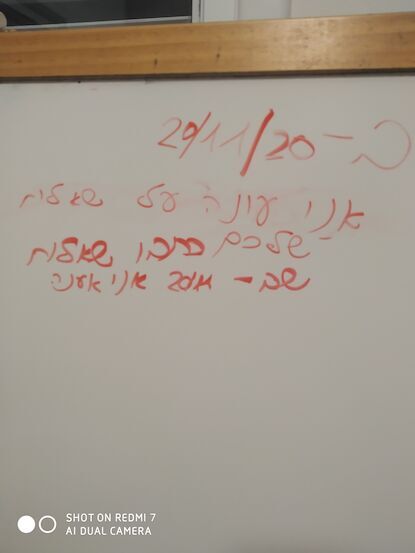 ב- 29/11/20
אני עונה על שאלות
שלכם כתבו שאלות
אני אענה
SHOT ON REDMI 7
AI DUAL CAMERA